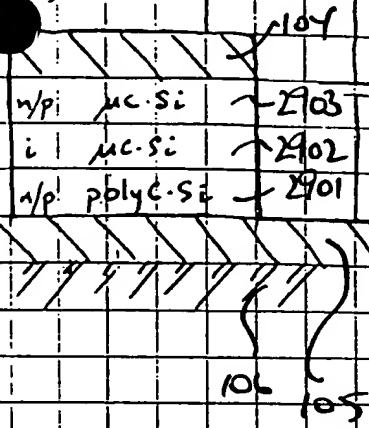 104
n/p μc-Si 2903
i μc-Si 2902
n/p polyC-Si 2901
106
105